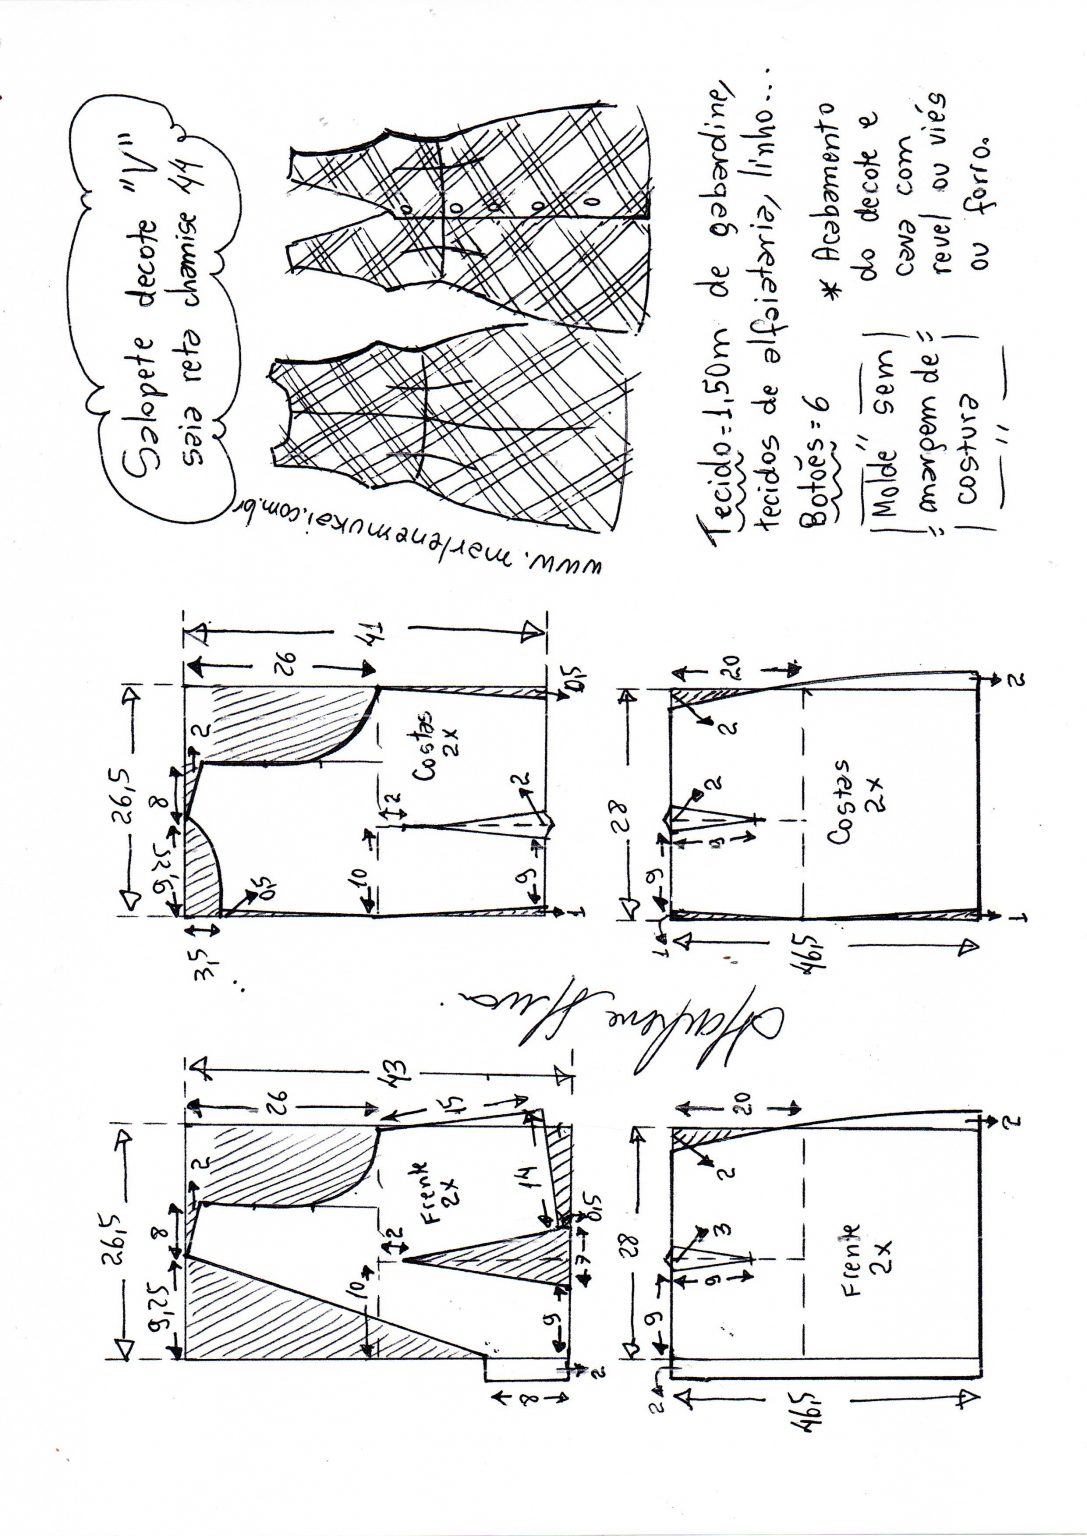 Salopete decote "V"
saia reta chamise 44
www.marlenemukai.com.br
Tecido = 1,50m de gabardine,
tecidos de alfaiataria, linho...
Botões = 6
* Acabamento
do decote e
cava com
revel ou viés
ou forro.
Molde sem
margem de
costura
26,5
9,25
8
2
26
43
15
14
Frente
2x
2
10
9
7
0,5
8
2
26,5
9,25
8
2
26
41
3,5
0,5
Costas
2x
2
10
9
2
1
0,5
Marlene Mukai
28
9
3
9
2
20
Frente
2x
2
46,5
2
28
1
9
2
9
2
20
Costas
2x
46,5
1
2